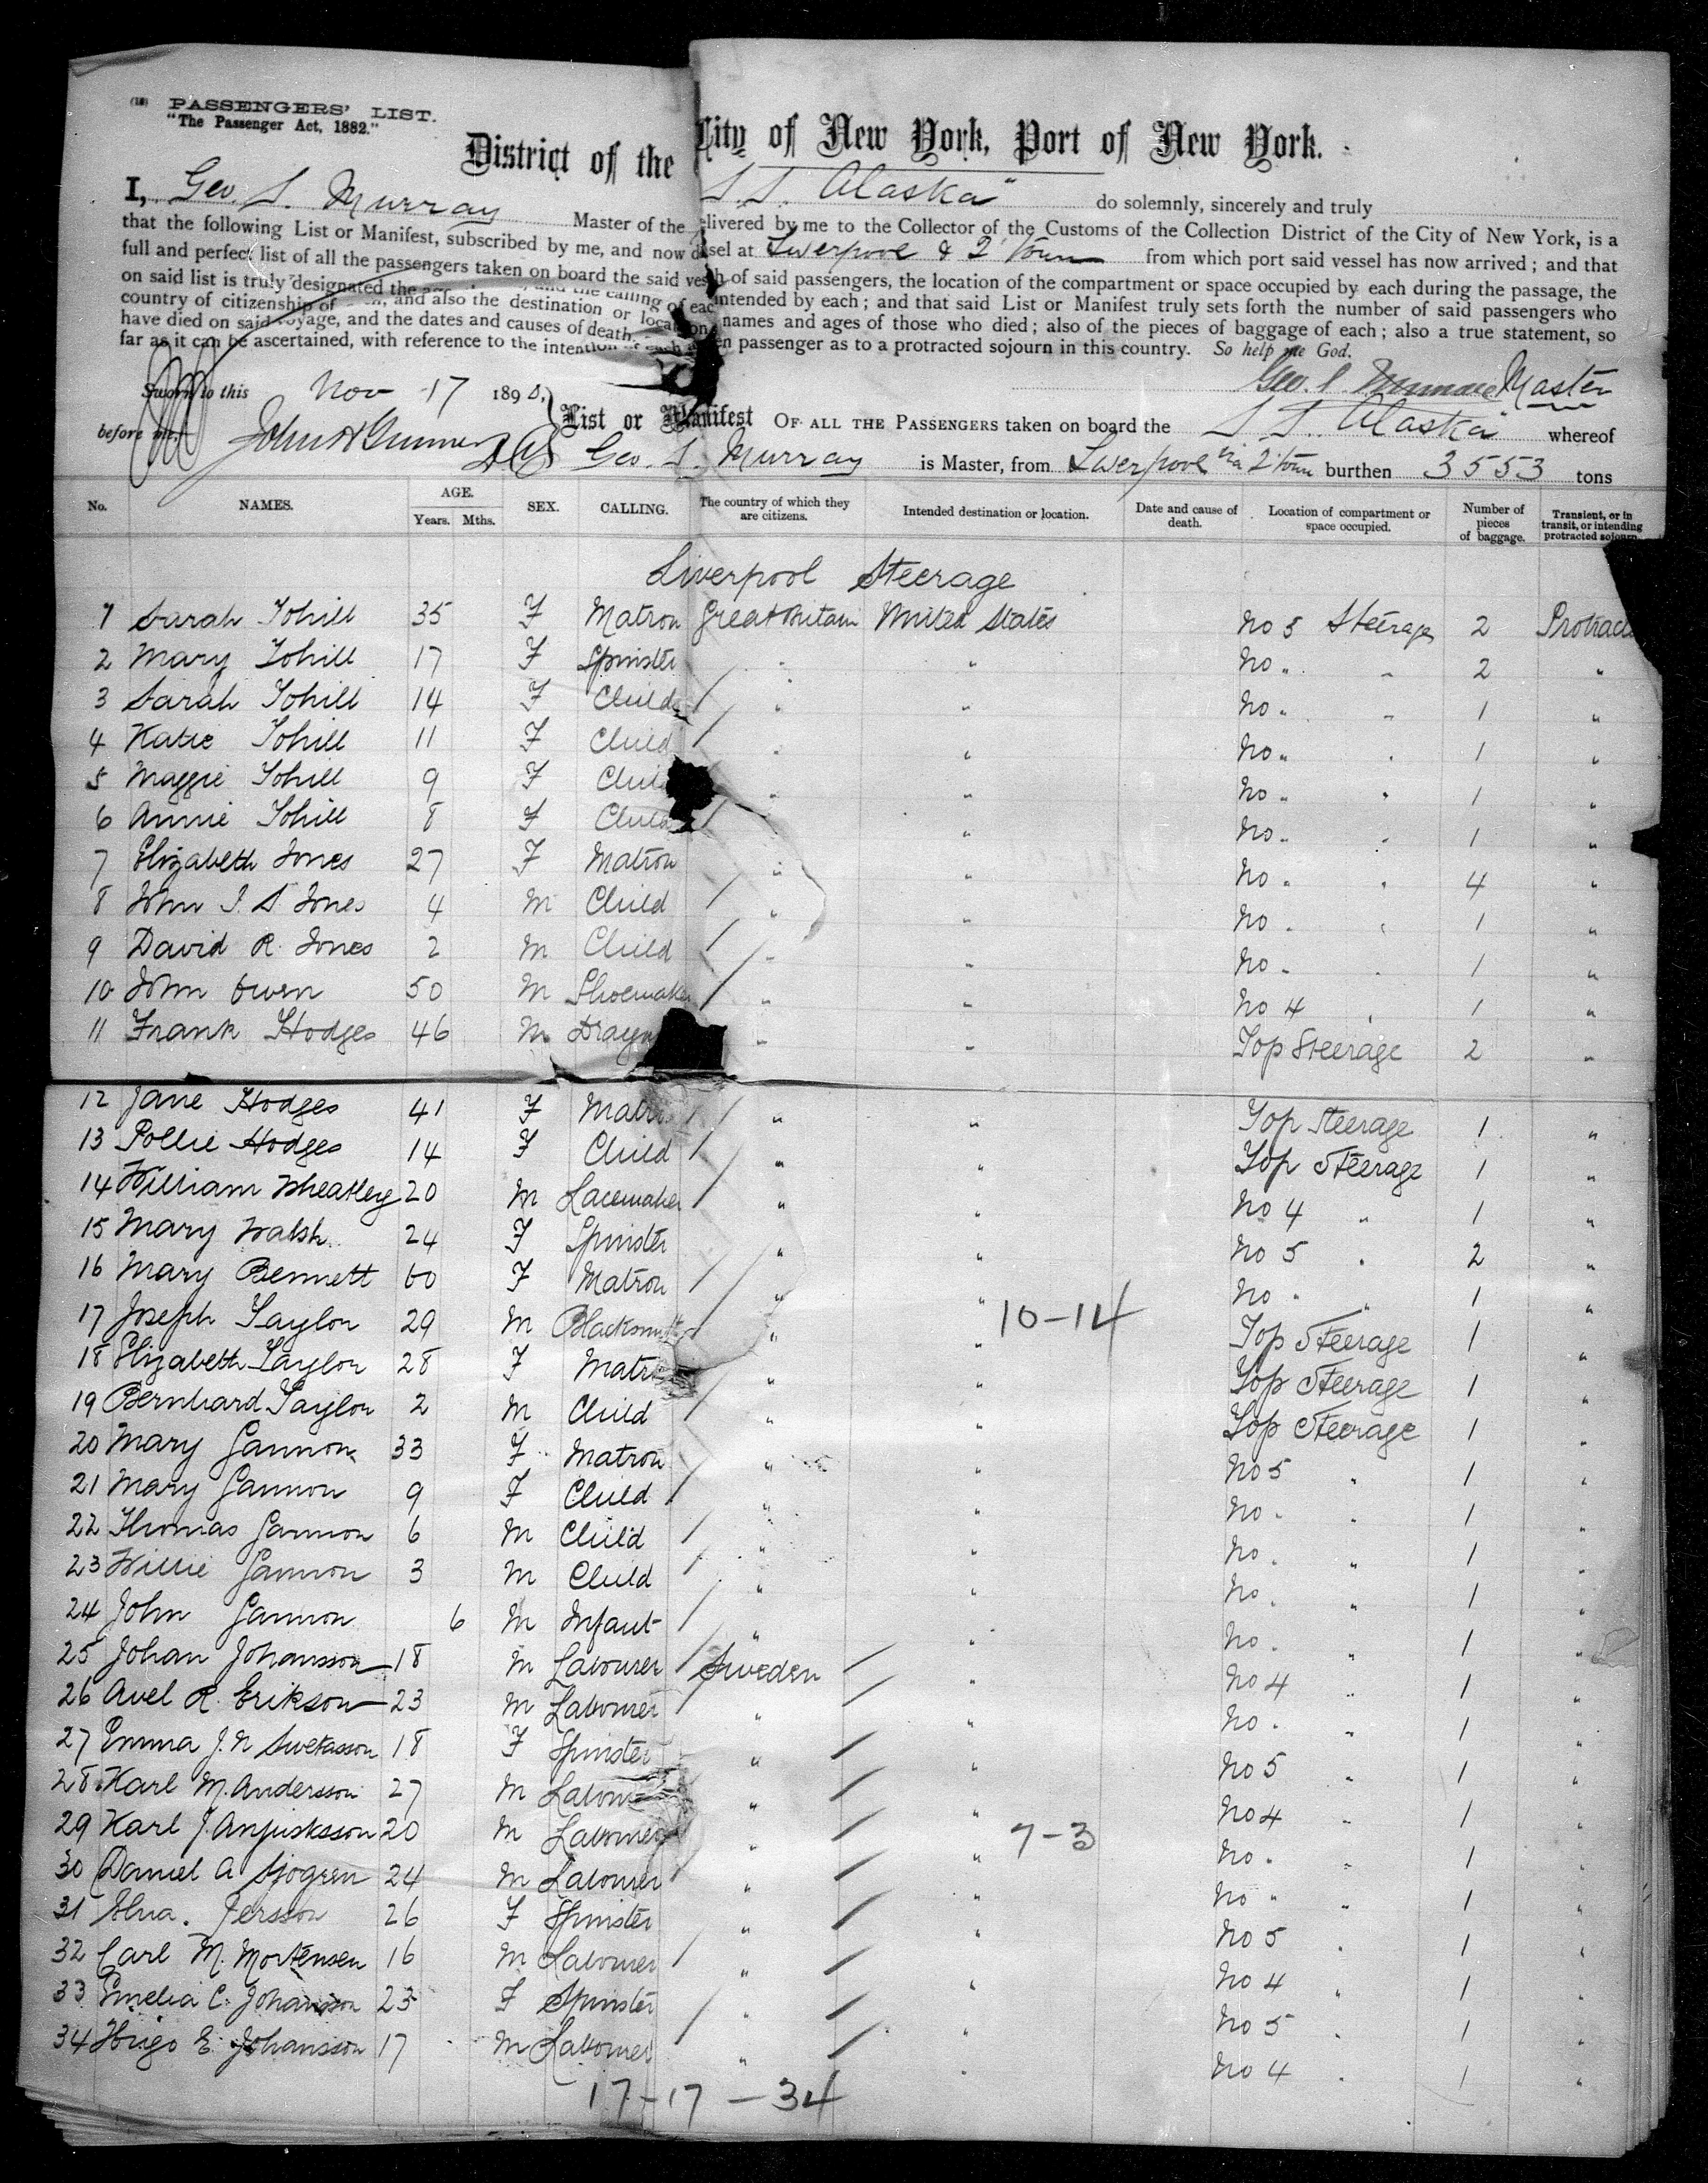 (18) PASSENGERS' LIST.
"The Passenger Act, 1882."
District of the City of New York, Port of New York.
I, Geo. S. Murray Master of the S.S. Alaska" do solemnly, sincerely and truly
that the following List or Manifest, subscribed by me, and now delivered by me to the Collector of the Customs of the Collection District of the City of New York, is a
full and perfect list of all the passengers taken on board the said vessel at Liverpool & Q'town from which port said vessel has now arrived; and that
on said list is truly designated the and the calling of each of said passengers, the location of the compartment or space occupied by each during the passage, the
country of citizenship of and also the destination or location intended by each; and that said List or Manifest truly sets forth the number of said passengers who
have died on said voyage, and the dates and causes of death, names and ages of those who died; also of the pieces of baggage of each; also a true statement, so
far as it can be ascertained, with reference to the intention of each passenger as to a protracted sojourn in this country. So help me God.
Geo. S. Murray Master
Sworn to this Nov 17 1890,
before me, List or Manifest OF ALL THE PASSENGERS taken on board the S.S. Alaska" whereof
Geo. S. Murray is Master, from Liverpool via Q'town burthen 3553 tons
No. NAMES. AGE. Years. Mths. SEX. CALLING. The country of which they are citizens. Intended destination or location. Date and cause of death. Location of compartment or space occupied. Number of pieces of baggage. Transient, or in transit, or intending protracted sojourn.
Liverpool Steerage
1 Sarah Tohill 35 F Matron Great Britain United States No 5 Steerage 2
2 Mary Tohill 17 F Spinster " " No " " 2 "
3 Sarah Tohill 14 F Child " " No " " 1 "
4 Katie Tohill 11 F Child " " No " " 1 "
5 Maggie Tohill 9 F Child " " No " " 1 "
6 Annie Tohill 8 F Child " No " " 1 "
7 Elizabeth Jones 27 F Matron " " No " " 4 "
8 John I. S Jones 4 M Child " " No " " 1 "
9 David R. Jones 2 M Child " " No " " 1 "
10 John Owen 50 M Shoemaker " " No 4 " 1 "
11 Frank Hodges 46 M " " Top Steerage 2 "
12 Jane Hodges 41 F Matron " " Top Steerage 1 "
13 Pollie Hodges 14 F Child " " Top Steerage 1 "
14 William Wheatley 20 M Lacemaker " " No 4 " 1 "
15 Mary Walsh 24 F Spinster " " No 5 " 2 "
16 Mary Bennett 60 F Matron " " No " " 1 "
10-14
17 Joseph Taylor 29 M Blacksmith " " Top Steerage 1 "
18 Elizabeth Taylor 28 F Matron " " Top Steerage 1 "
19 Bernhard Taylor 2 M Child " " Top Steerage 1 "
20 Mary Gannon 33 F Matron " " No 5 " 1 "
21 Mary Gannon 9 F Child " " No " " 1 "
22 Thomas Gannon 6 M Child " " No " " 1 "
23 Willie Gannon 3 M Child " " No " " 1 "
24 John Gannon 6 M Infant " " No " " 1 "
25 Johan Johansson 18 M Labourer Sweden No 4 " 1 "
26 Axel R. Erikson 23 M Labourer " " No " " 1 "
27 Emma J. N 18 F Spinster " " No 5 " 1 "
28 Karl M. Andersson 27 M Labourer " " No 4 " 1 "
29 Karl J. 20 M Labourer " " No " " 1 "
7-3
30 Daniel A Sjogren 24 M Labourer " " No " " 1 "
31 Persson 26 F Spinster " " No 5 " 1 "
32 Carl M. Mortensen 16 M Labourer " " No 4 " 1 "
33 Emelia C. Johansson 23 F Spinster " " No 5 " 1 "
34 Hugo E. Johansson 17 M Labourer " " No 4 " 1 "
17-17-34